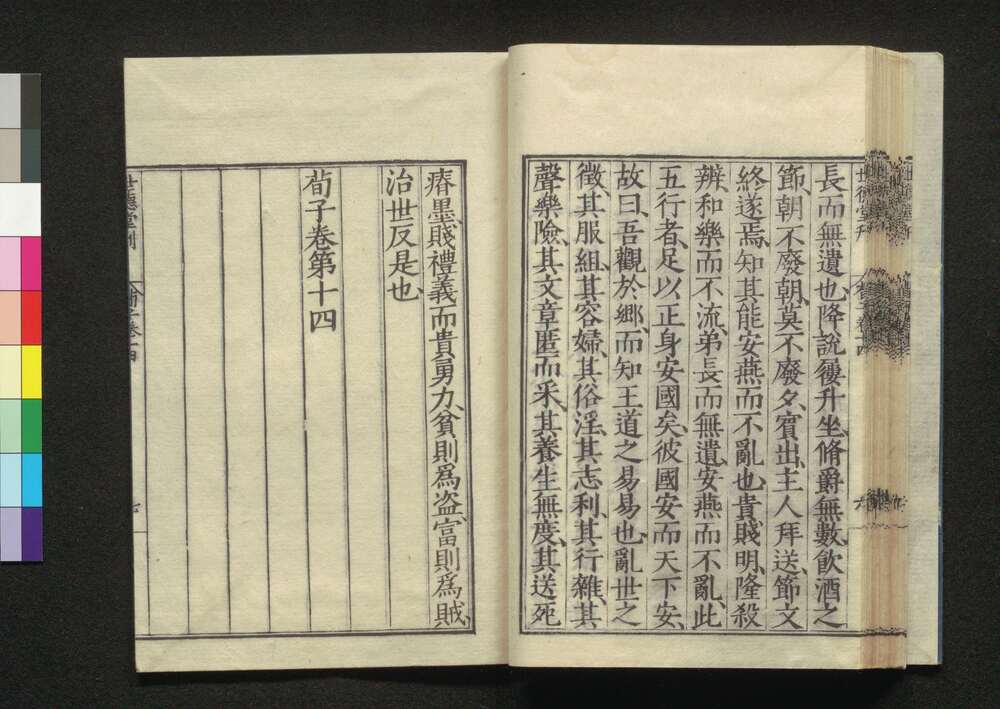 長而無遺也、降說屨升坐、脩爵無數、飲酒之
節、朝不廢朝、莫不廢夕、賓出、主人拜送、節文
終遂焉、知其能安燕而不亂也、貴賤明、隆殺
辨、和樂而不流、弟長而無遺、安燕而不亂、此
五行者、足以正身安國矣、彼國安而天下安、
故曰、吾觀於鄉、而知王道之易易也、亂世之
徵、其服組、其容婦、其俗淫、其志利、其行雜、其
聲樂險、其文章匿而采、其養生無度、其送死
瘠墨、賤禮義而貴勇力、貧則爲盗、富則爲賊、
治世反是也、
荀子卷第十四
世德堂刊
七